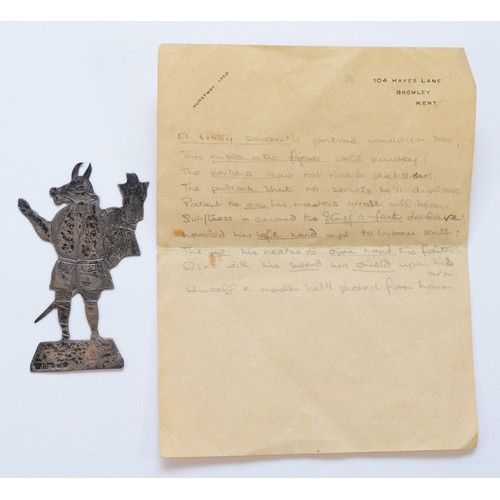 HURSTWAY 1390
104 HAYES LANE
BROMLEY
KENT
A trusty servant's portrait would you see,
This emblematic figure well survey:
The porkers snout not nice in diet shews:
The padlock shut no secrets he'll disclose
Patient the ass his masters wrath will hear.
Swiftness in errand the Stagg's-feet declare:
Loaded his left hand apt to labour saith:
The his neatness open hand his faith
Girt with his sword his shield upon his
arm
Himself & master he'll protect from harm